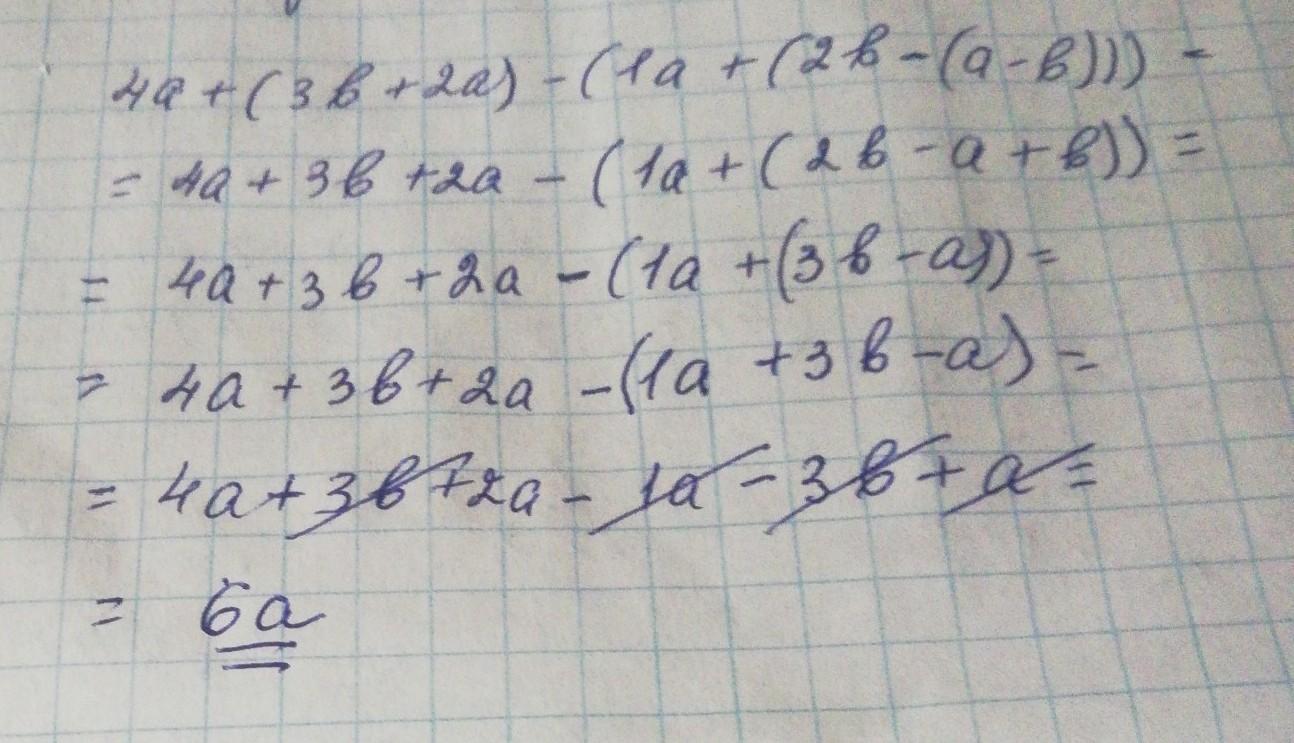 4a + (3b + 2a) - (1a + (2b - (a - b))) =
= 4a + 3b + 2a - (1a + (2b - a + b)) =
= 4a + 3b + 2a - (1a + (3b - a)) =
= 4a + 3b + 2a - (1a + 3b - a) =
= 4a + 3b + 2a - 1a - 3b + a =
= 6a